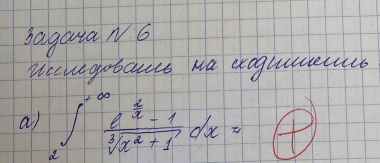 Задача № 6
Исследовать на сходимость
а) ∫₂^{+∞} (e^{2/x} - 1)/∛(x² + 1) dx = +